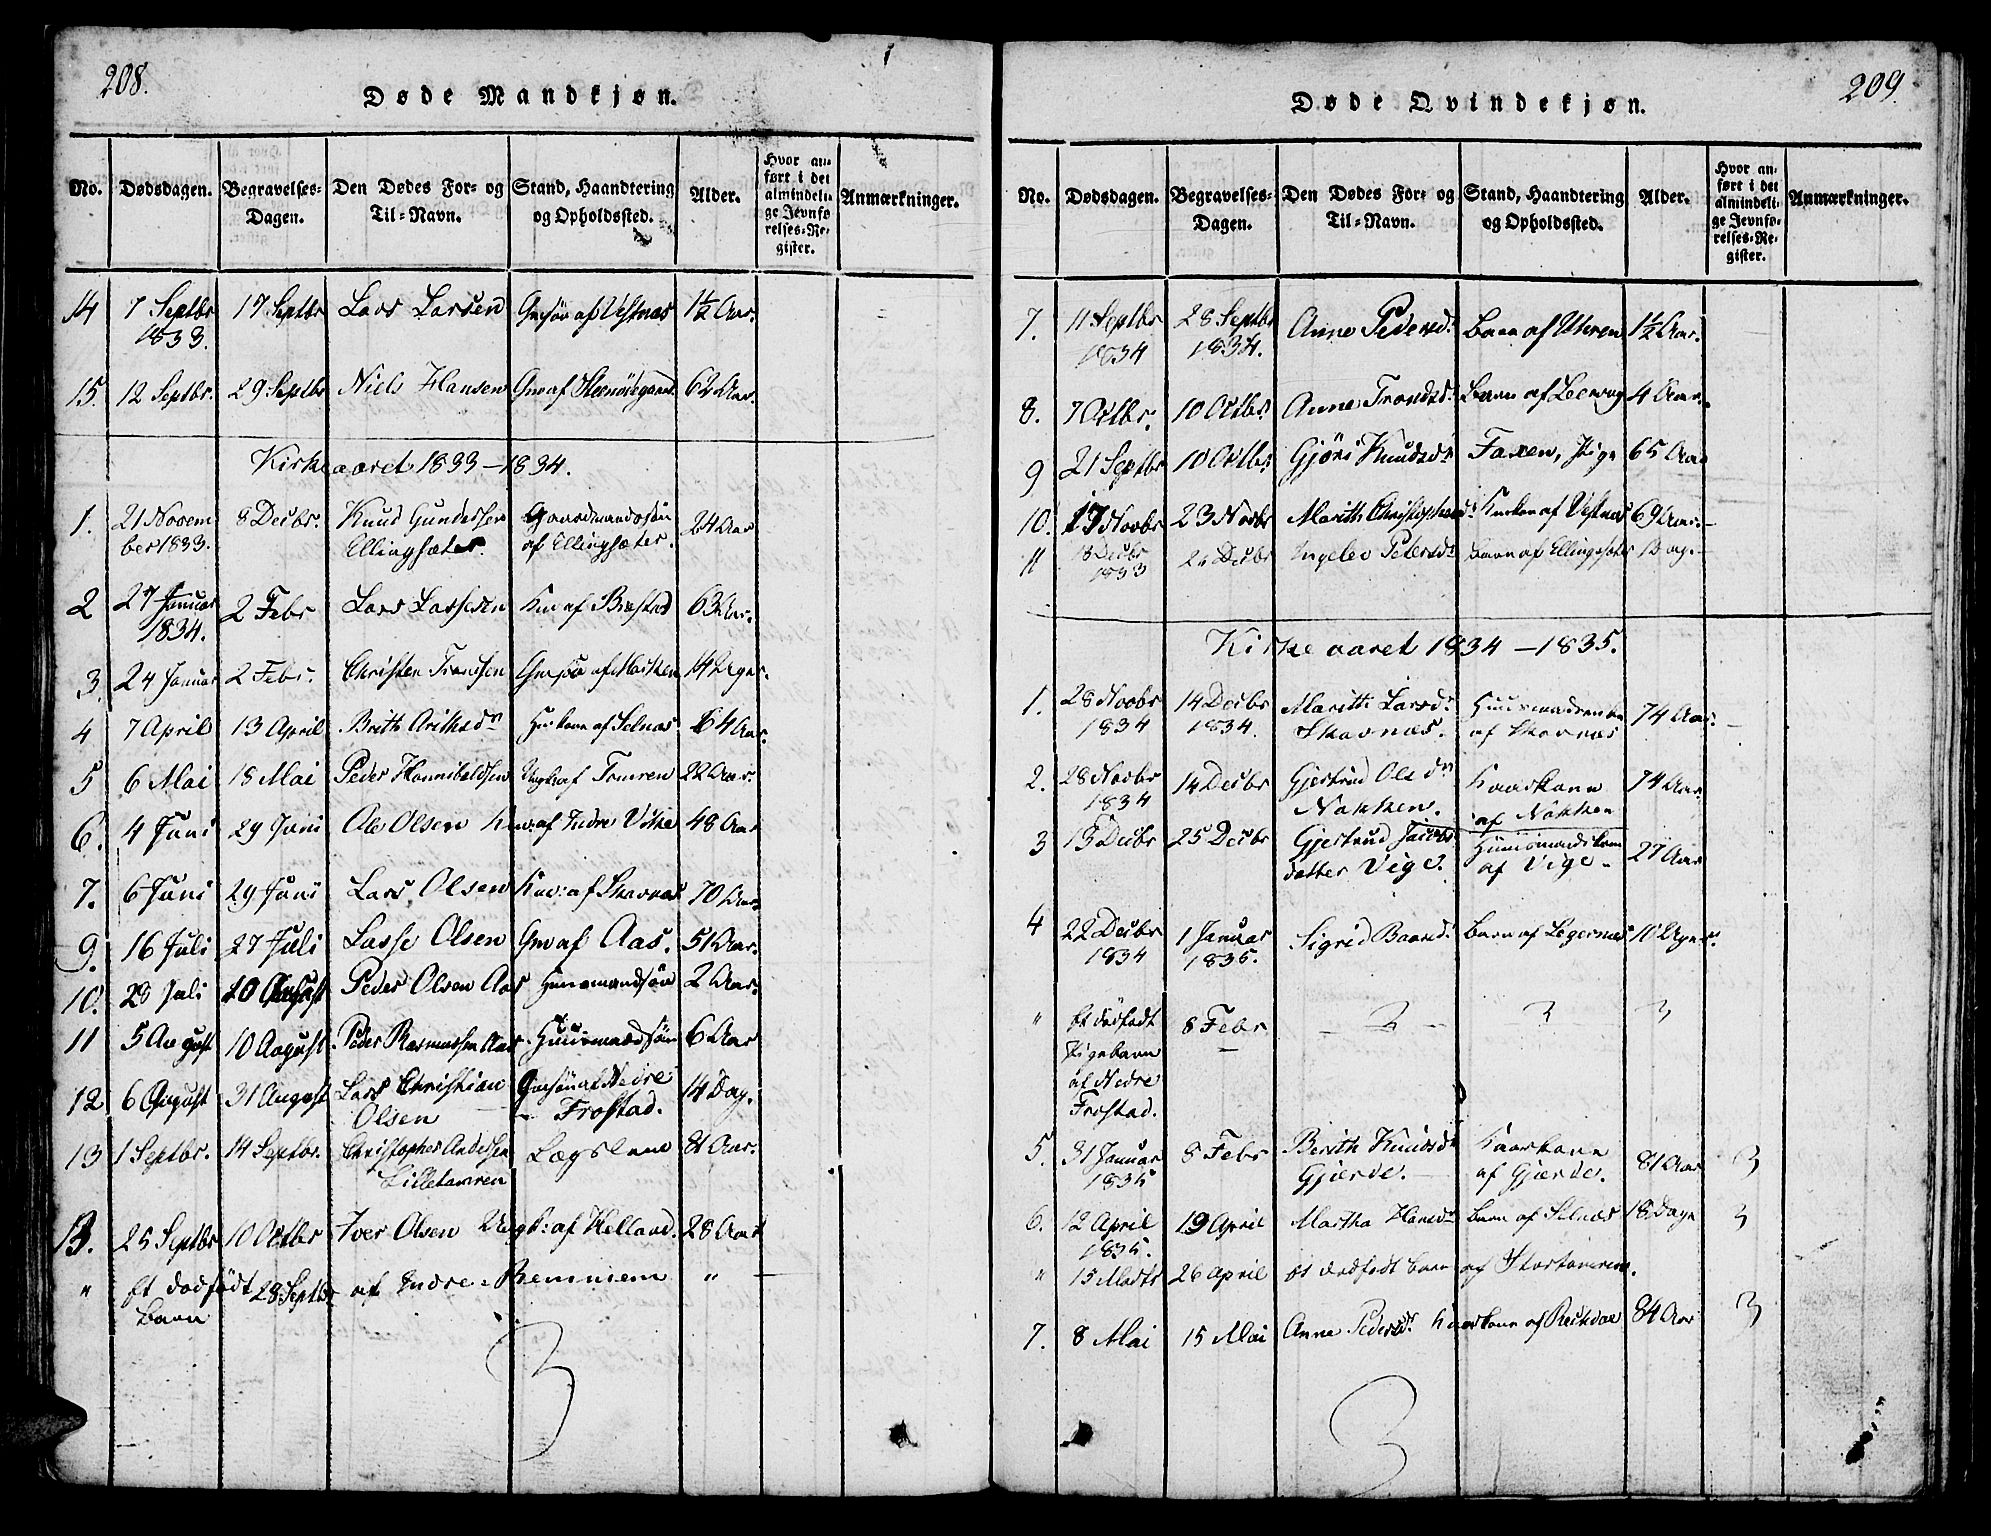 208.
Døde Mandkjøn.
No. Dødsdagen. Begravelses-Dagen. Den Dødes For- og Til-Navn. Stand, Haandtering og Opholdssted. Alder. Hvor anført i det almindelige Jevnførelses-Register. Anmærkninger.
14 7 Septbr 1833. 17 Septbr Lars Larsen Gmsøn af Vestnæs 1½ Aar.
15. 12 Septbr. 29 Septbr Niels Hansen Gm af 62 Aar.
Kirkeaaret 1833-1834.
1. 21 November 1833. 8 Decbr. Knud Gundersen Ellingsæter. Gaardmandssøn af Ellingsæter. 24 Aar
2 27 Januar 1834. 2 Febr Lars Lassesen Km af 63 Aar.
3. 24 Januar 2 Febr. Christen Trondsen Gmsøn af 14 Dage.
4 7 April 13 April Brith Ericksdr Huuskone af Selnæs 64 Aar.
5 6 Mai 18 Mai Peder Hannibaldsen Ungk: af Tomren 22 Aar.
6. 4 Juni 29 Juni Ole Olsen Km: af Indre Vike 48 Aar
7. 6 Juni 29 Juni Lars Olsen Kaar: af Skavnæs 70 Aar.
9. 16 Juli 27 Juli Lasse Olsen Gm af Aas. 51 Aar.
10. 28 Juli 10 August Peder Olsen Aas Huusmandsøn 2 Aar.
11 5 August 10 August Peder Rasmussen Aas Huusmandsøn 6 Aar
12 6 August 31 August Lars Christian Olsen Gmsøn af Nedre Frostad. 14 Dag.
13 1 Septbr. 14 Septbr. Christopher Andersen Lilletomren Lægslem 81 Aar.
13. 25 Septbr 10 Octbr Iver Olsen Ungk: af Helland. 28 Aar
" Et dødfødt Barn 28 Septbr af Indre-Remmem "
3
209.
Døde Qvindekjøn.
No. Dødsdagen. Begravelses-Dagen. Den Dødes For- og Til-Navn. Stand, Haandtering og Opholdssted. Alder. Hvor anført i det almindelige Jevnførelses-Register. Anmærkninger.
7. 11 Septbr 1834 28 Septbr 1834. Anne Pedersdr. Barn af Uhren 1½ Aar.
8. 7 Octbr. 10 Octbr. Anne Trondsdr. Barn af Leervog 4 Aar.
9 21 Septbr 10 Octbr. Gjøri Knudsdr Faxen, Pige 65 Aar
10. 17 Novbr 23 Novbr Marith Christophersd: Kaarkon af Vestnæs 69 Aar.
11 18 Decbr 1833 26 Decbr Ingelev Petersdr Barn af Ellingsæter 1 Dag.
Kirkeaaret 1834-1835.
1. 28 Novbr 1834 14 Decbr 1834. Marith Larsdr Skavnæs. Huusmandsenke af Skavnæs 74 Aar.
2. 28 Novbr 1834 14 Decbr Gjertrud Olsdr Nakken. Kaarkone af Nakken 74 Aar.
3 13 Decbr 25 Decbr Gjertrud Jacobsdatter Vige. Huusmandskone af Vige 27 Aar
4 22 Decbr 1834 1 Januar 1835. Sigrid Baardsd: Barn af Legernæs 10 Uger.
" Et dødfødt Pigebarn af Nedre Frostad. 8 Febr
5. 31 Januar 1835 8 Febr Berith Knudsdr Gjerde. Kaarkone af Gjerde. 81 Aar 3
6. 12 April 1835. 19 April Martha Hansdr Barn af Selnæs 18 Dage 3
" 15 Marts 26 April et dødfødt Barn af Stortomren.
7. 8 Mai 15 Mai Anne Pedersdr. Kaarkone af Reitdal 84 Aar 3
3